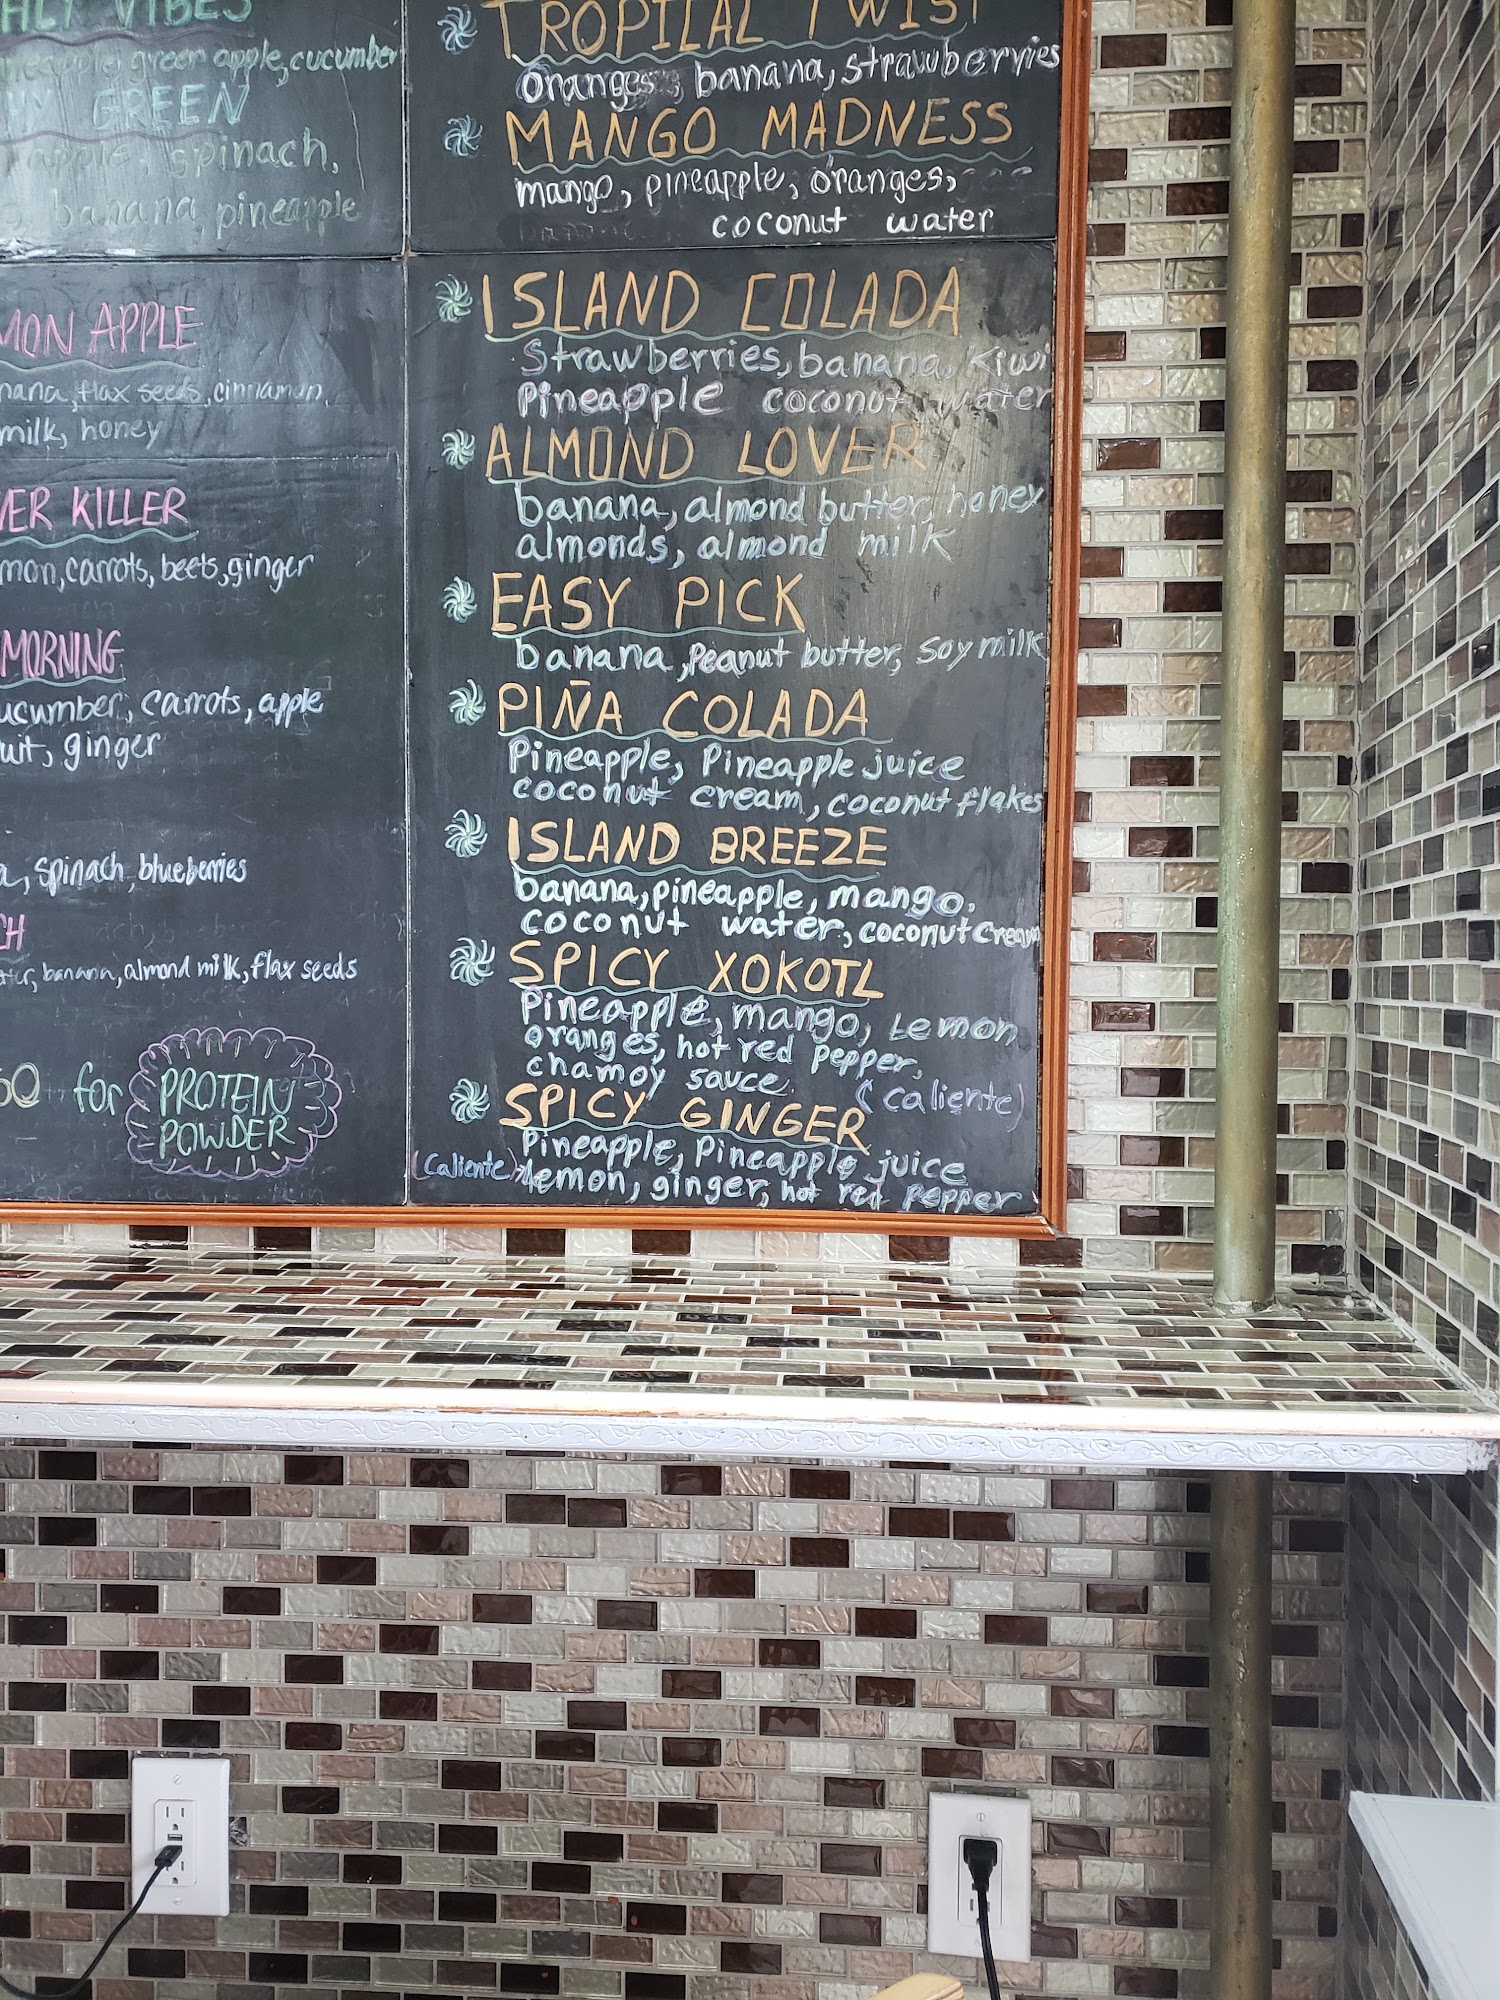 VIBES
green apple, cucumber
GREEN
apple, spinach,
banana, pineapple
APPLE
flax seeds, cinnamon,
milk, honey
KILLER
carrots, beets, ginger
MORNING
carrots, apple
ginger
spinach, blueberries
banana, almond milk, flax seeds
for PROTEIN
POWDER
TROPICAL TWIST
Oranges, banana, strawberryies
MANGO MADNESS
mango, pineapple, oranges,
coconut water
ISLAND COLADA
Strawberries, banana, Kiwi
Pineapple coconut water
ALMOND LOVER
banana, almond butter, honey
almonds, almond milk
EASY PICK
banana, Peanut butter, Soy milk
PIÑA COLADA
Pineapple, Pineapple juice
coconut cream, coconut flakes
ISLAND BREEZE
banana, pineapple, mango,
coconut water, coconut cream
SPICY XOKOTL
Pineapple, mango, Lemon
oranges, hot red Pepper,
chamoy sauce (caliente)
SPICY GINGER
Pineapple, Pineapple juice
(Caliente) lemon, ginger, hot red pepper